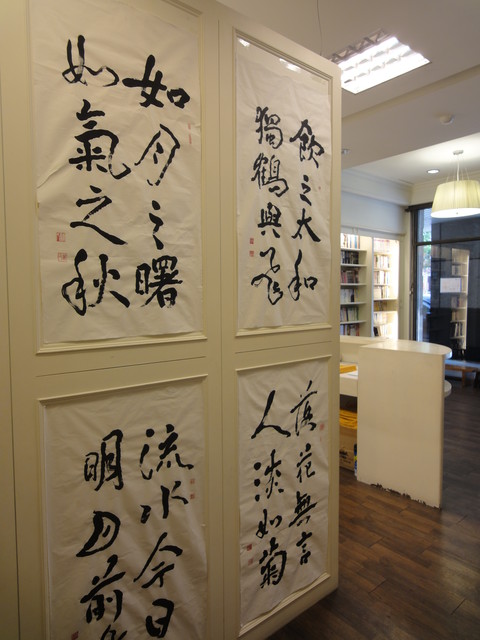 如月之曙
如氣之秋
飲之太和
獨鶴與飛
流水今日
明月前
落花無言
人淡如菊